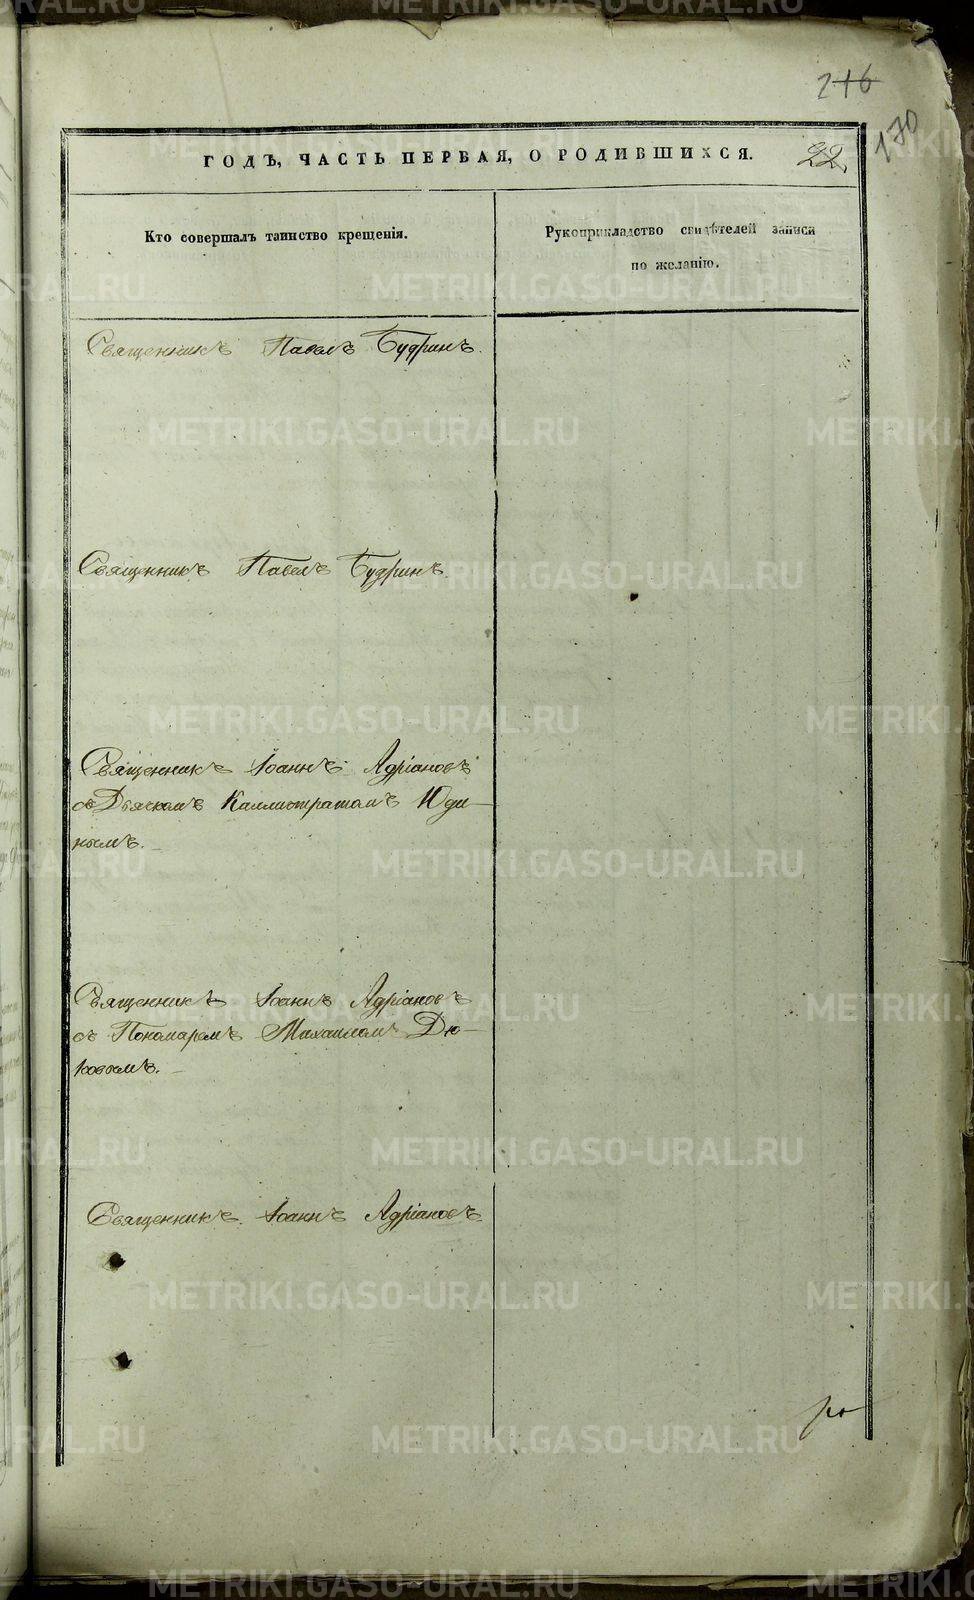 216
170
ГОДЪ, ЧАСТЬ ПЕРВАЯ, О РОДИВШИХСЯ. 22.
Кто совершалъ таинство крещенія.
Рукоприкладство свидѣтелей записи
по желанію.
Священникъ Павелъ Будринъ.
Священникъ Павелъ Будринъ.
Священникъ Іоаннъ Адріановъ
съ Дьячкомъ Каллистратомъ Юди-
нымъ.
Священникъ Іоаннъ Адріановъ
съ Пономаремъ Михаиломъ Дю-
ковымъ.
Священникъ Іоаннъ Адріановъ.
METRIKI.GASO-URAL.RU